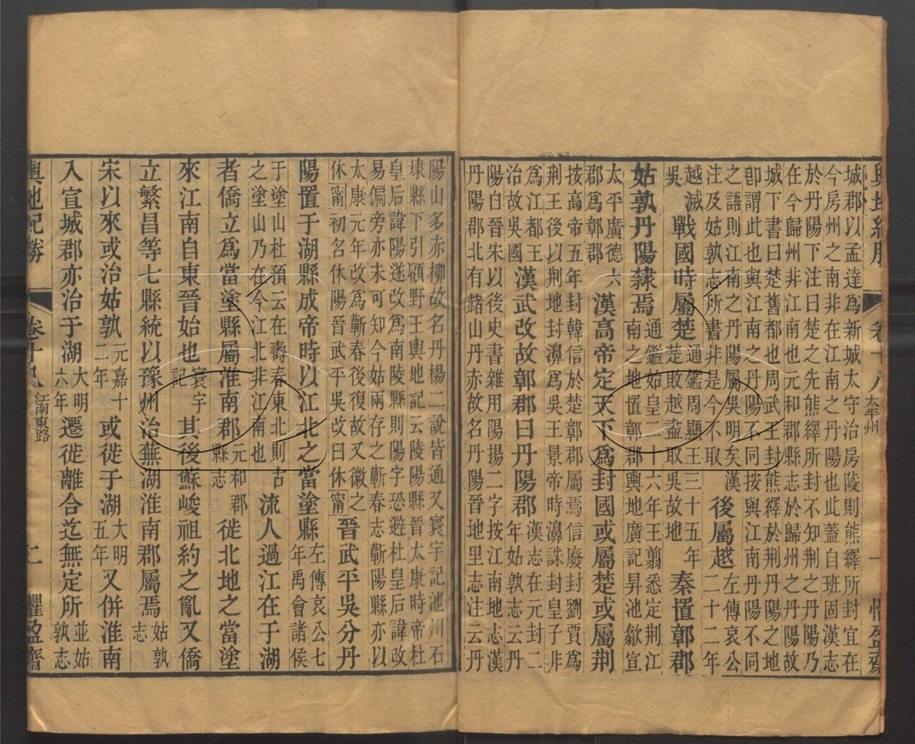 輿地紀勝 卷十八 太平州 一 懼盈齋
城郡以孟達為新城太守治房陵則熊繹所封宜在
今房州之南非在江南之丹陽也此蓋自班固漢志
於丹陽下注曰楚之先熊繹所封不知荆之丹陽乃
在今歸州非江南也元和郡縣志於歸州之丹陽故
城下書曰楚舊都也周武王封熊繹於荆丹陽之地
卽謂此也與江南之丹陽不同按與江南丹陽不同
之語則江南之丹陽屬吳明矣漢
注及姑孰志所書非是今不取
後屬越
左傳哀公
二十二年
越滅
吳
戰國時屬楚
通鑑周顯王三十五年
楚敗越盡取吳故地
秦置鄣郡
姑孰丹陽隸焉
通鑑始皇二十六年王翦悉定荆江
南之地置鄣郡輿地廣記昇池歙宣
太平廣德六
郡為鄣郡
漢高帝定天下為封國或屬楚或屬荆
按高帝五年封韓信於楚鄣郡屬焉信廢封劉賈為
荆王後以荆地封濞為吳王景帝時濞誅封皇子非
為江都王
治故吳國
漢武改故鄣郡曰丹陽郡
漢志在元封二
年姑孰志云丹
陽自晉宋以後史書雜用陽揚二字按江南地志漢
丹陽郡北有赭山丹赤故名丹陽晉地里志注云丹
陽山多赤柳故名丹楊二說皆通又寰宇記池川石
埭縣下引顧野王輿地記云陵陽縣晉太康時帝杜
皇后諱陽遂改為南陵縣則陽字恐避杜皇后諱改
易偏旁亦未可知今姑兩存之蘄春志蘄陽縣亦以
太康元年改為蘄春後復故又徽之
休甯初名休陽晉武平吳改曰休甯
晉武平吳分丹
陽置于湖縣成帝時以江北之當塗縣
左傳哀公七
年禹會諸侯
于塗山杜預云在壽春東北則古
之塗山乃在今江北非江南也
流人過江在于湖
者僑立為當塗縣屬淮南郡
元和郡
縣志
徙北地之當塗
來江南自東晉始也
寰宇
記
其後蘇峻祖約之亂又僑
立繁昌等七縣統以豫州治蕪湖淮南郡屬焉
姑孰
志
宋以來或治姑孰
元嘉十
二年
或徙于湖
大明
五年
又併淮南
入宣城郡亦治于湖
大明
六年
遷徙離合迄無定所
並姑
孰志
輿地紀勝 卷十八 江南東路 二 懼盈齋